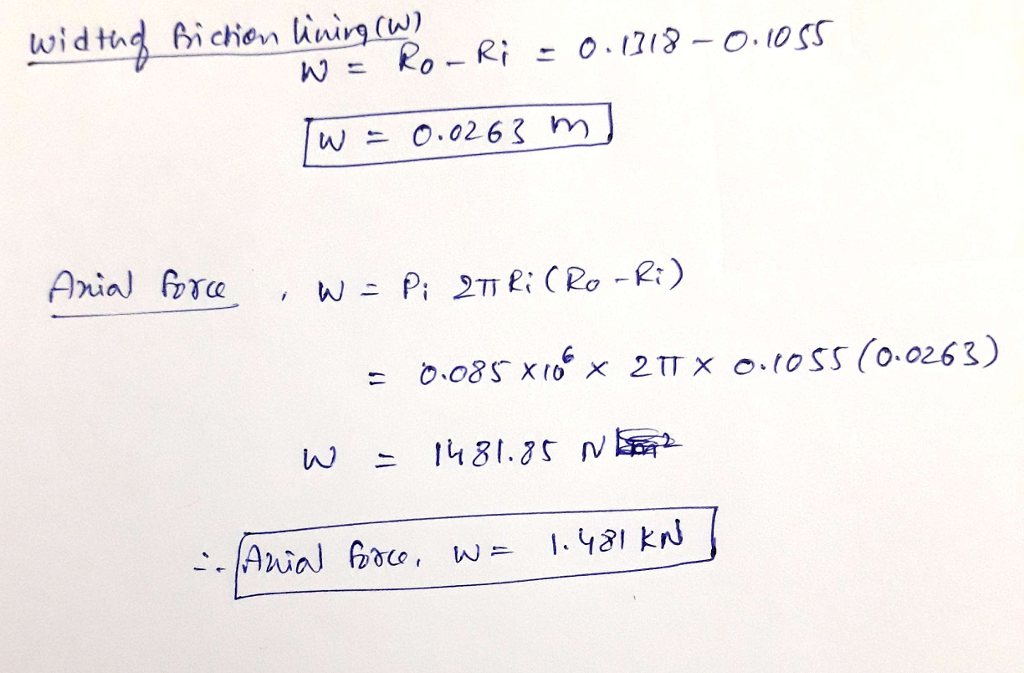 width of friction lining (w)
W = Ro - Ri = 0.1318 - 0.1055
W = 0.0263 m
Axial force , W = Pi 2π Ri (Ro - Ri)
= 0.085 x 10⁶ x 2π x 0.1055 (0.0263)
W = 1481.85 N
∴ Axial force, W = 1.481 KN